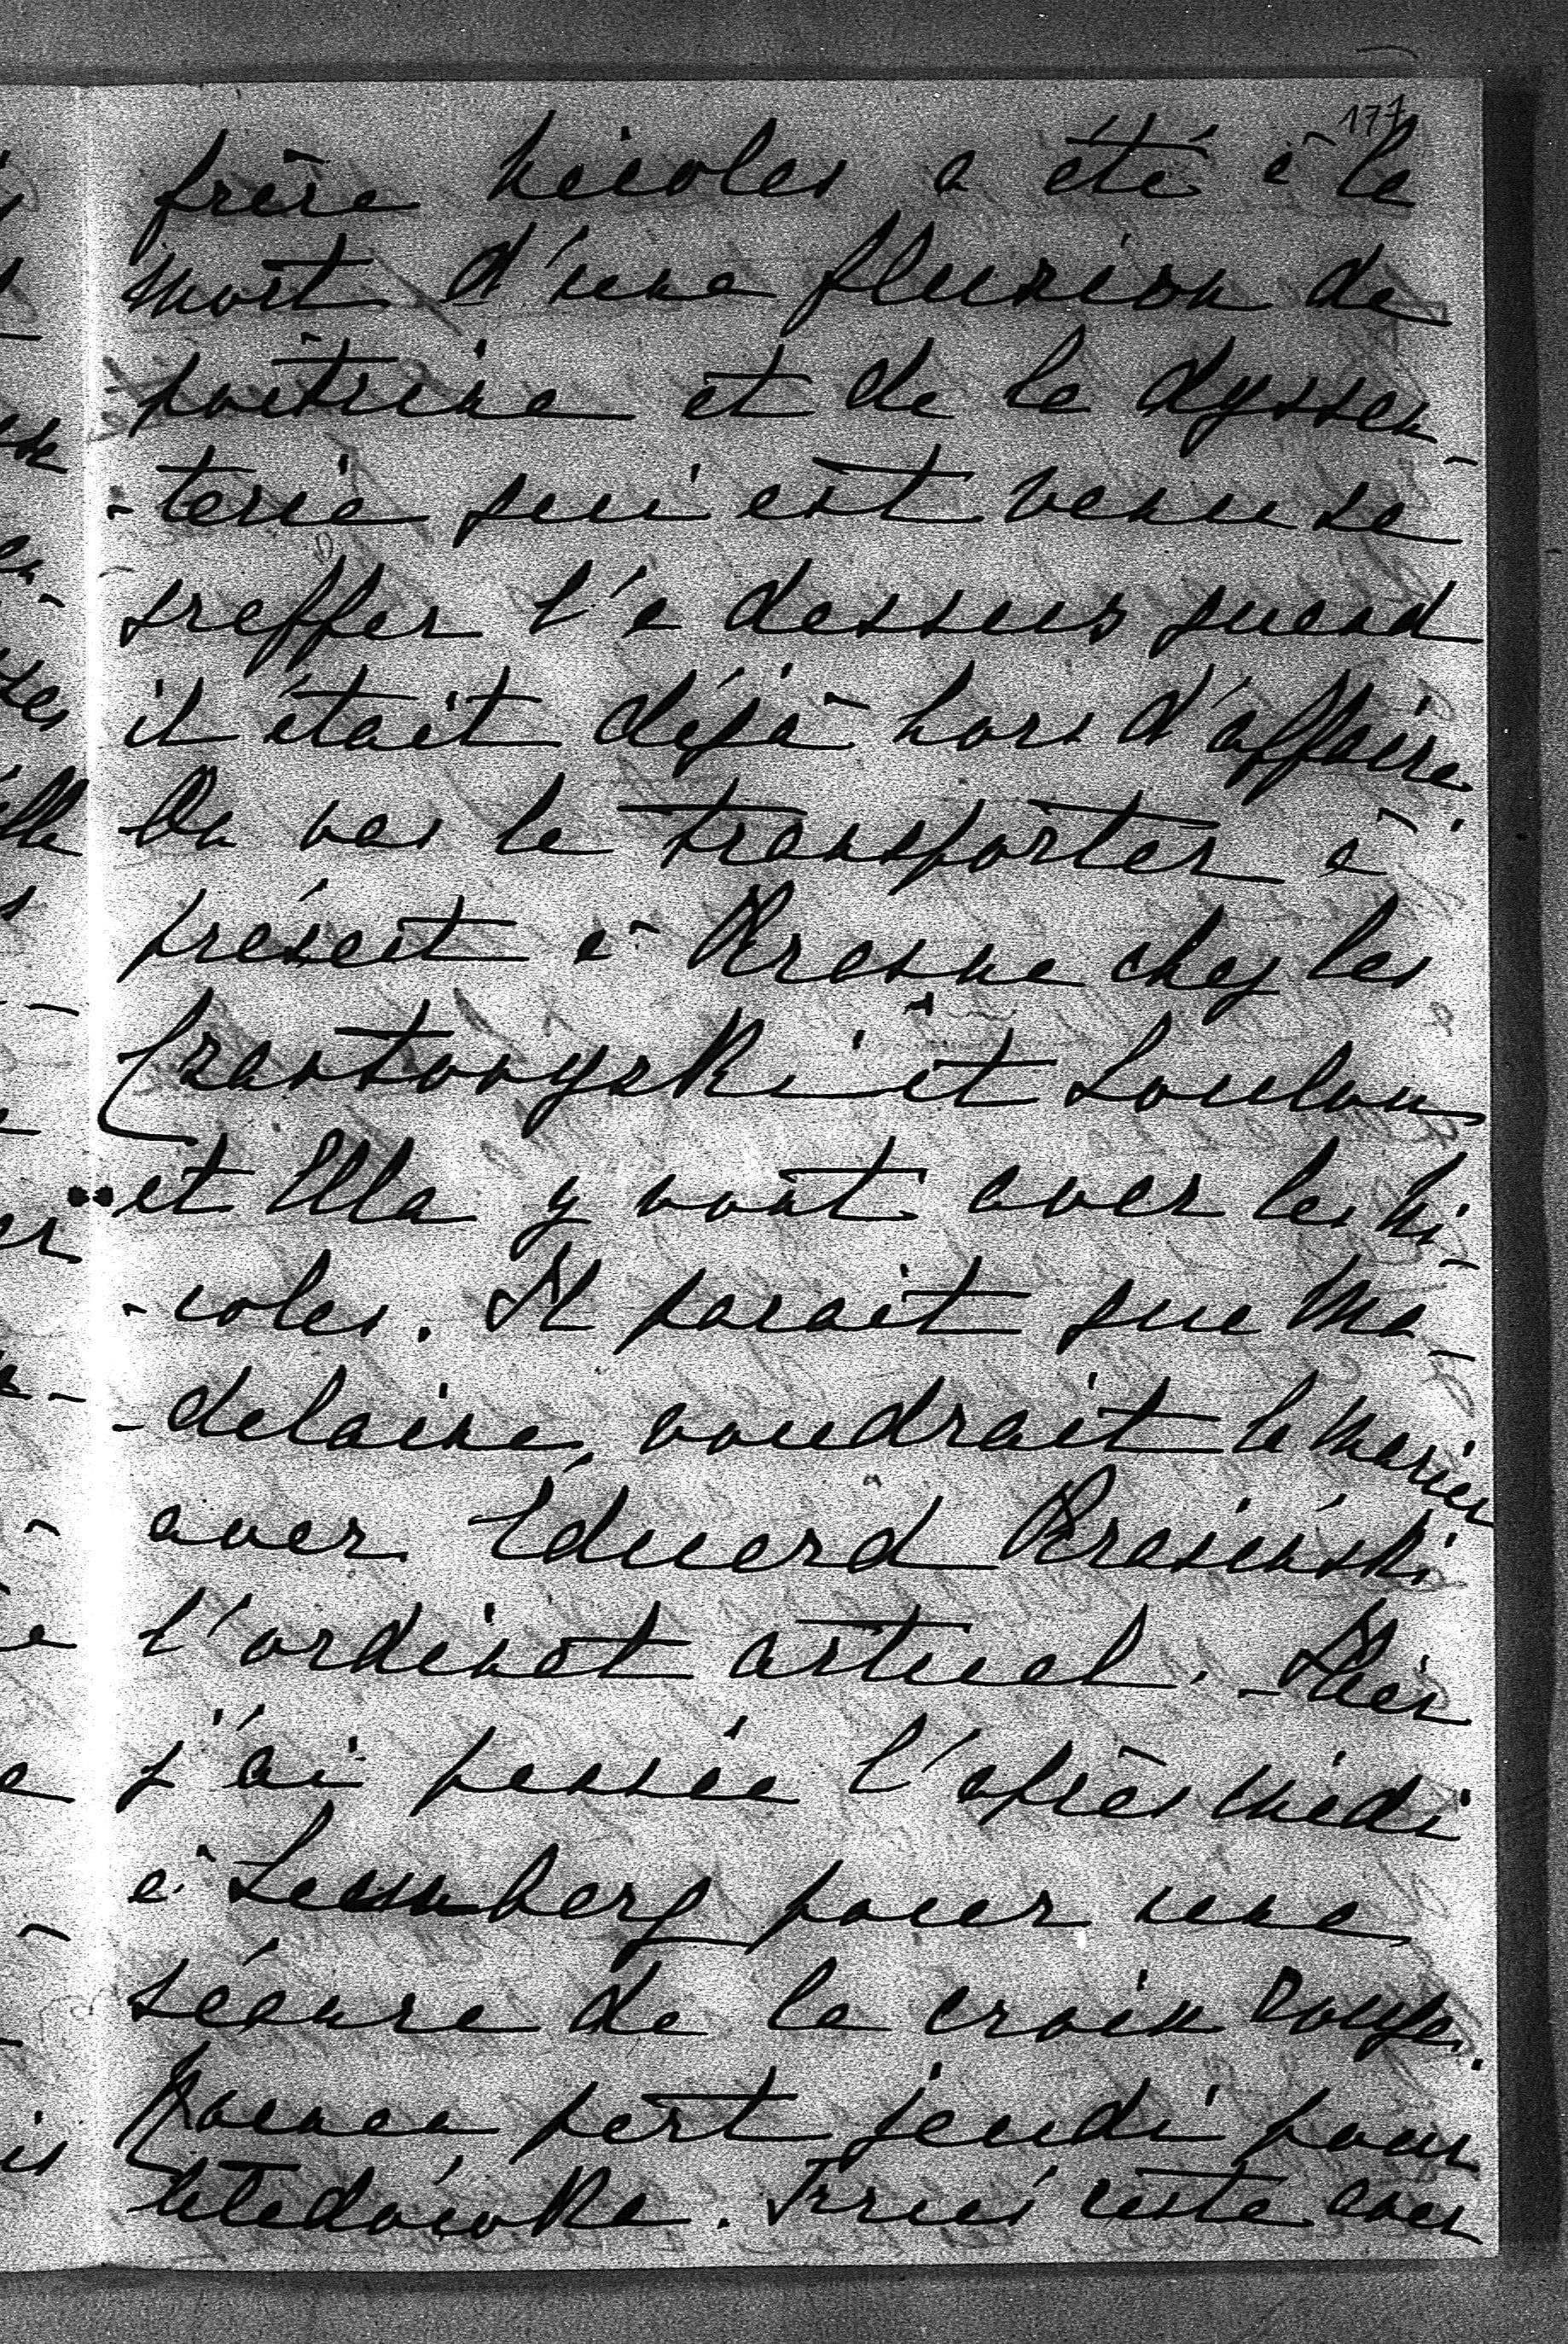 177
frère Nicolas a été à la
mort d'une fluxion de
poitrine et de la dyssen-
-terie qui est venu se
greffer là dessus quand
il était déjà hors d'affaire.
On vas le transporter à
présent à Krasne chez les
et Loulou
et Ella y vont avec les Ni-
-colas. Il parait que Ma-
-delaine voudrait la marier
avec Eduard Krasiński
l'ordinat actuel. - Hier
j'ai passée l'après midi
à Lemberg pour une
séance de la croix rouge.
part jeudi pour
reste avec